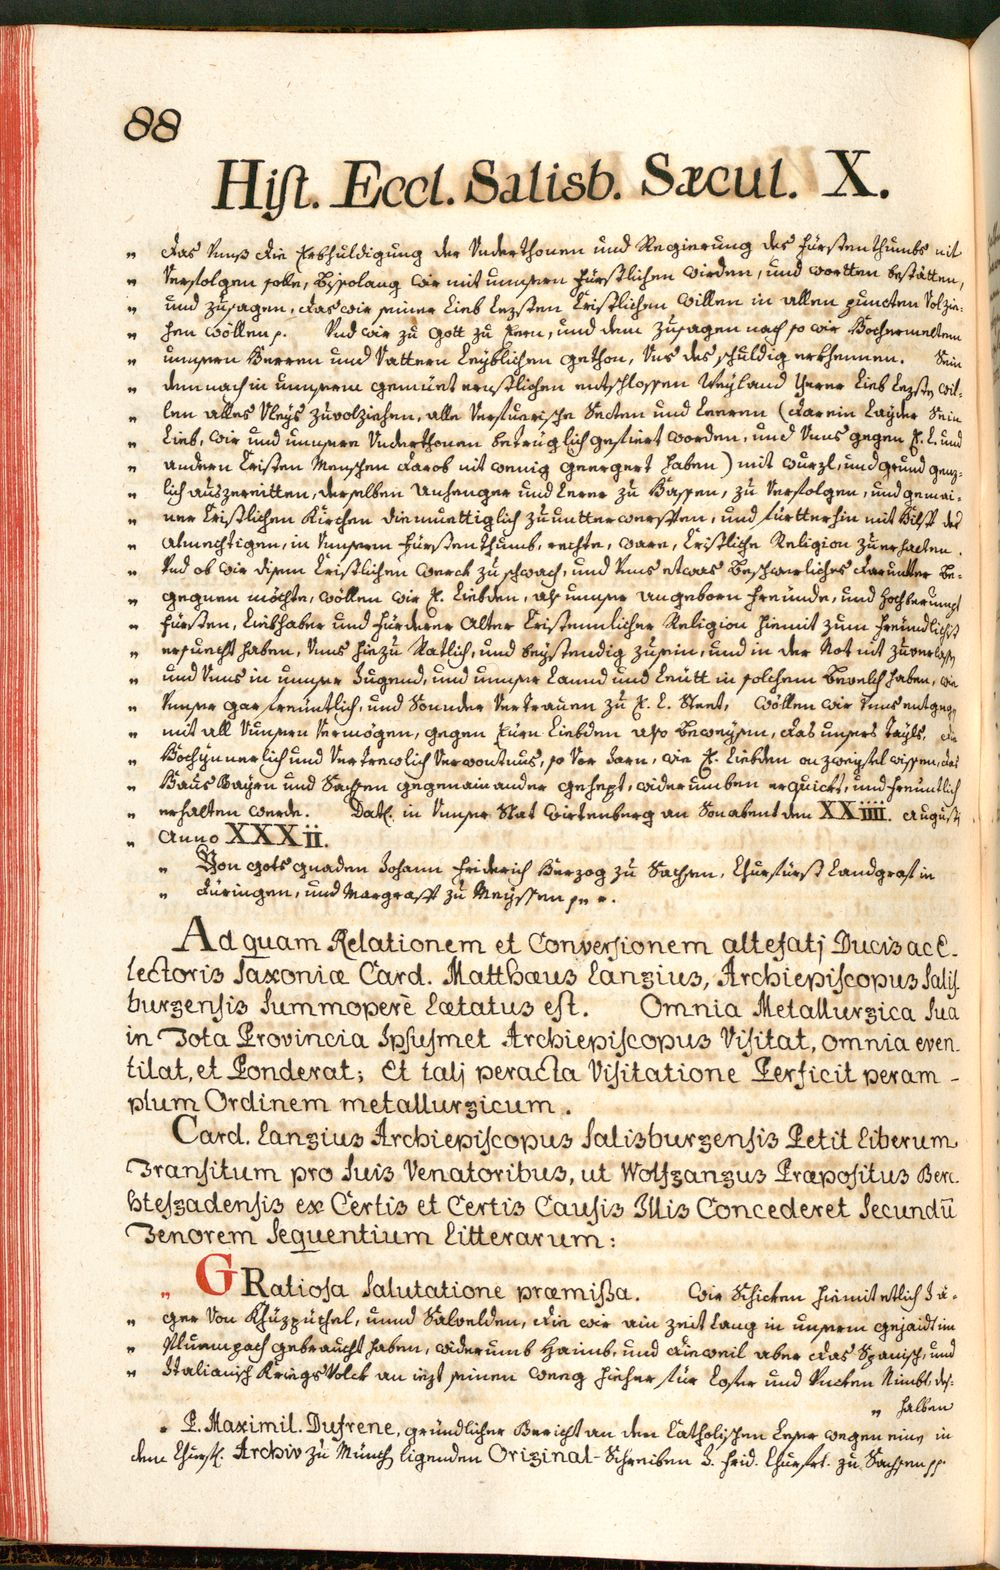 88
Hist. Eccl. Salisb. Sæcul. X.
„ das Unns die Erbhuldigung der Underthonen und Regierung des Fürstenthumbs nit
„ Verfolgen solle, bissolang wir mit unnsern Fürstlichen wirden, und wortten bestätten,
„ und zusagen, das wir seiner Lieb Lezsten Cristlichen willen in allen puncten Volzie-
„ hen wöllen p. Und wir zu Gott zu Eern, und dem zusagen nach so wir Hochermeltem
„ unnserm Herren und Vattern Leyblichen gethon, Uns des schuldig erkhennen. Sein
„ demnach in unnserm gemüet ernstlichen entschlossen Weyland Yerer Lieb Lezste wil-
„ len alles Vleys zuvolziehen, alle Verfuerische Secten und Leeren (darein Layder Sein
„ Lieb, wir und unnsere Underthonen betrüglich gefiert worden, und Unns gegen E. L. und
„ andern Cristen Menschen darob nit wenig geergert haben) mit wurzl, und grund genz-
„ lich auszereitten, derselben Anhenger und Lerer zu Hassen, zu Verfolgen, und gemai-
„ ner Cristlichen Kirchen diemuettiglich zu untterwerffen, und fürtterhin mit Hilff des
„ Almechtigen, in Unnserm Fürstenthumb, rechte, ware, Cristliche Religion zuerhalten.
„ Und ob wir disem Cristlichen werck zu schwach, und Unns etwas Beschwerliches darunter Be-
„ gegnen möchte, wöllen wir E. Liebden, als unnser angeborn Freunde, und Hochberumpt
„ Fürsten, Liebhaber und Fürderer Alter Cristennlicher Religion hiemit zum Freundlichst
„ ersuecht haben, Unns hiezu Ratlich, und beystendig zusein, und in der Not nit zuverlassn
„ und Unns in unnser Jugend, und unnser Lannd und Leütt in solchem Bevelch haben, wie
„ Unnser gar freüntlich, und Sonnder Vertrauen zu E. L. Steet, wöllen wir Unns entgegn
„ mit all Unnsern Vermögen, gegen Eürn Liebden also Beweysen, das unsers Tayls, die
„ Hochynnerlich und Vertrewlich Verwontnus, so Vor Jarn, wie E. Liebden on zweyfel wissen, das
„ Haus Bayrn und Sachsen gegenainander gehept, widerumben erquickt, und freuntlich
„ erhalten werde. Dat. in Unnser Stat Wirtenberg an Sonabent den XXiiii. Augusti
„ Anno XXXii.
„ Von Gots gnaden Johann Friderich Herzog zu Sachsen, Churfürst Landgraf in
„ Düringen, und Margraff zu Meyssen p.
Ad quam Relationem et Conversionem attefatj Ducis ac E-
lectoris Saxoniæ Card. Matthæus Langius, Archiepiscopus Salis-
burgensis Summoperè Lætatus est. Omnia Metallurgica Sua
in Tota Provincia Ipsusmet Archiepiscopus Visitat, omnia even-
tilat, et Ponderat; Et talj peracta Visitatione Perficit peram-
plum Ordinem metallurgicum.
Card. Langius Archiepiscopus Salisburgensis Petit Liberum
Transitum pro Suis Venatoribus, ut Wolfgangus Præpositus Berc-
htesgadensis ex Certis et Certis Causis Illis Concederet Secundū
Tenorem Sequentium Litterarum:
„ GRatiosa Salutatione præmissa. Wir Schicken hiemit etlich Jä-
„ ger Von Khüzpüchel, unnd Salvelden, die wir ain zeit lang in unnserm gejaidt im
„ Pluempach gebraucht haben, widerumb Haimb, und dieweil aber das Spanisch, und
„ Italianisch Kriegs Volck an iezt seinen weeg hieher für Lofer und Unken Nimbt, des-
„ halben
P. Maximil. Dufrene, gründlicher Bericht an den Catholischen Leser wegen eines in
dem Churfl. Archiv zu Münch ligenden Original-Schreiben J. Frid. Churfrt. zu Sachsen p.